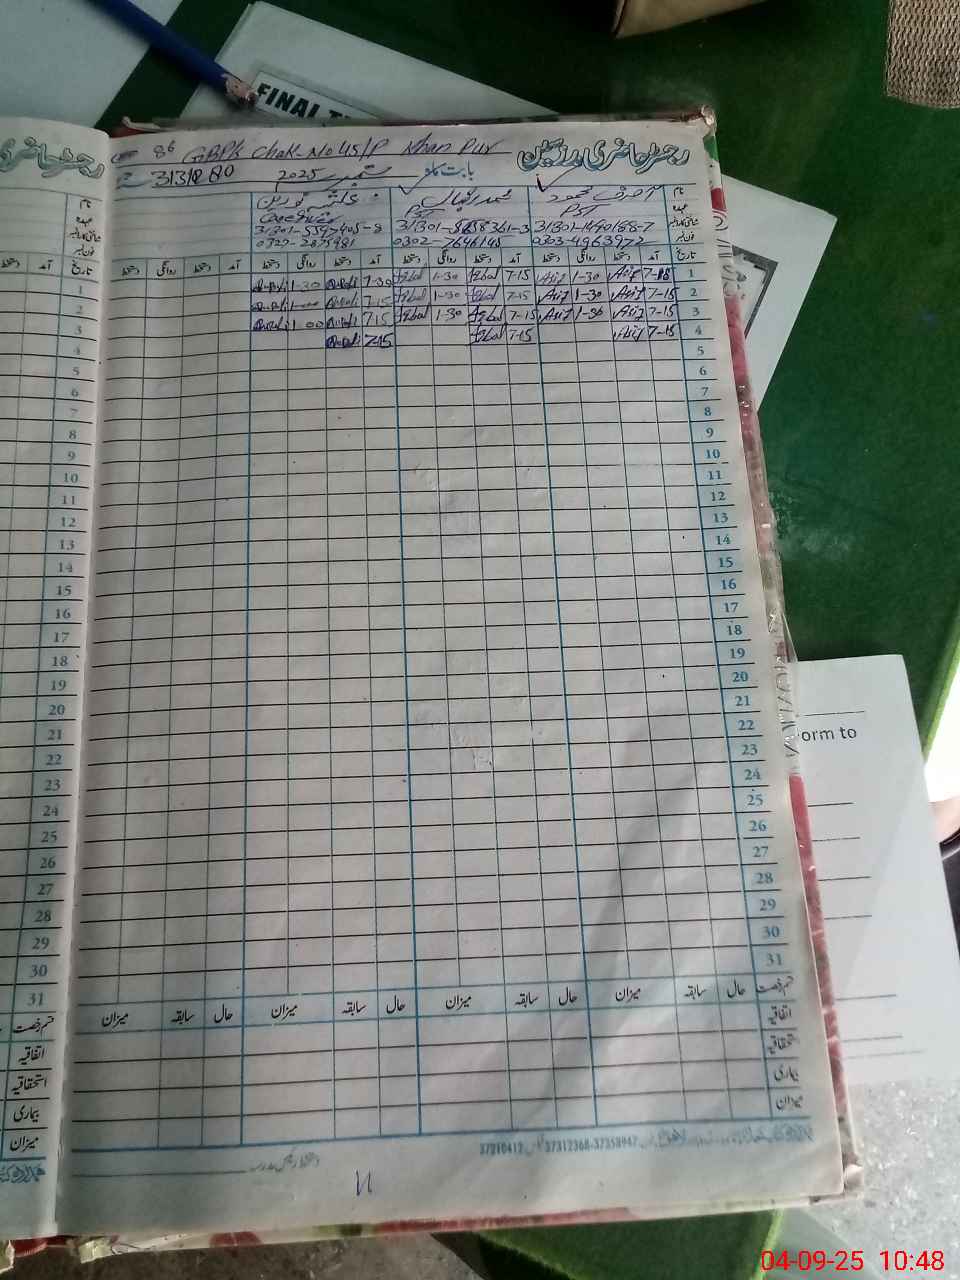 FINAL
رجسٹر حاضری مدرسین
86 GBPS Chak No 45/P Khan Pur
بابت ماہ ستمبر 2025
31310280
نام
عہدہ
شناختی کارڈ نمبر
فون نمبر
عارف محمود
PST
31301-1490188-7
0303-4963972
محمد اقبال
PST
0302-7646145
Care Giver
31301-5547405-8
تاریخ آمد دستخط روانگی دستخط آمد دستخط روانگی دستخط آمد دستخط روانگی دستخط آمد دستخط روانگی دستخط
1 Arif 1-30 Arif Iqbal 7-15 Iqbal 1-30
2 7-15 Arif 1-30 Arif 7-15 Iqbal 1-30 Iqbal 7-15
3 7-15 Arif 1-30 Arif 7-15 Iqbal 1-30 Iqbal 7-15 1-00
4 7-15 Arif 7-15 Iqbal 7-15
5
6
7
8
9
10
11
12
13
14
15
16
17
18
19
20
21
22
23
24
25
26
27
28
29
30
31
قسم رخصت حال سابقہ میزان حال سابقہ میزان حال سابقہ میزان حال سابقہ میزان
اتفاقیہ
استحقاقیہ
بیماری
میزان
37312368-37358947
37210412
orm to
1
2
3
4
5
6
7
8
9
10
11
12
13
14
15
16
17
18
19
20
21
22
23
24
25
26
27
28
29
30
31
قسم رخصت
اتفاقیہ
استحقاقیہ
بیماری
میزان
04-09-25 10:48